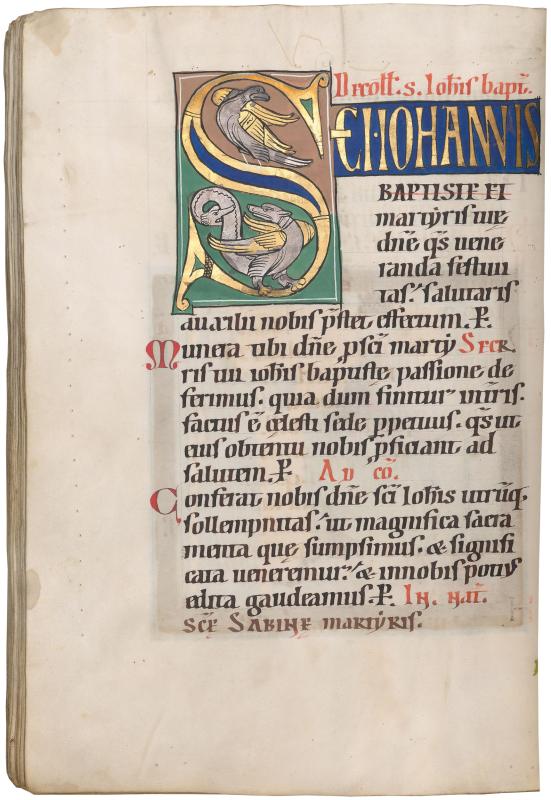 Decoll̄. s. Ioh̄is bapt̄.
SC̄I IOHANNIS
BAPTISTE ET
martyris tue
dn̄e q̄s vene
randa festiui
tas. salutaris
auxilii nobis p̄stet effectum. P.
Munera tibi dn̄e p sc̄i marty SECR.
ris tui ioh̄is baptiste passione de
ferimus. qua dum finitur in t̄ris.
factus ē celesti sede ppetuus. q̄s ut
eius obtentu nobis pficiant ad
salutem. P. AD CŌ.
Conferat nobis dn̄e sc̄i Ioh̄is utrūq.
sollempnitas. ut magnifica sacra
menta que sumpsimus. & signifi
cata ueneremur. & in nobis potius
edita gaudeamus. P. IN. NAT̄.
SCE SABINE MARTYRIS.